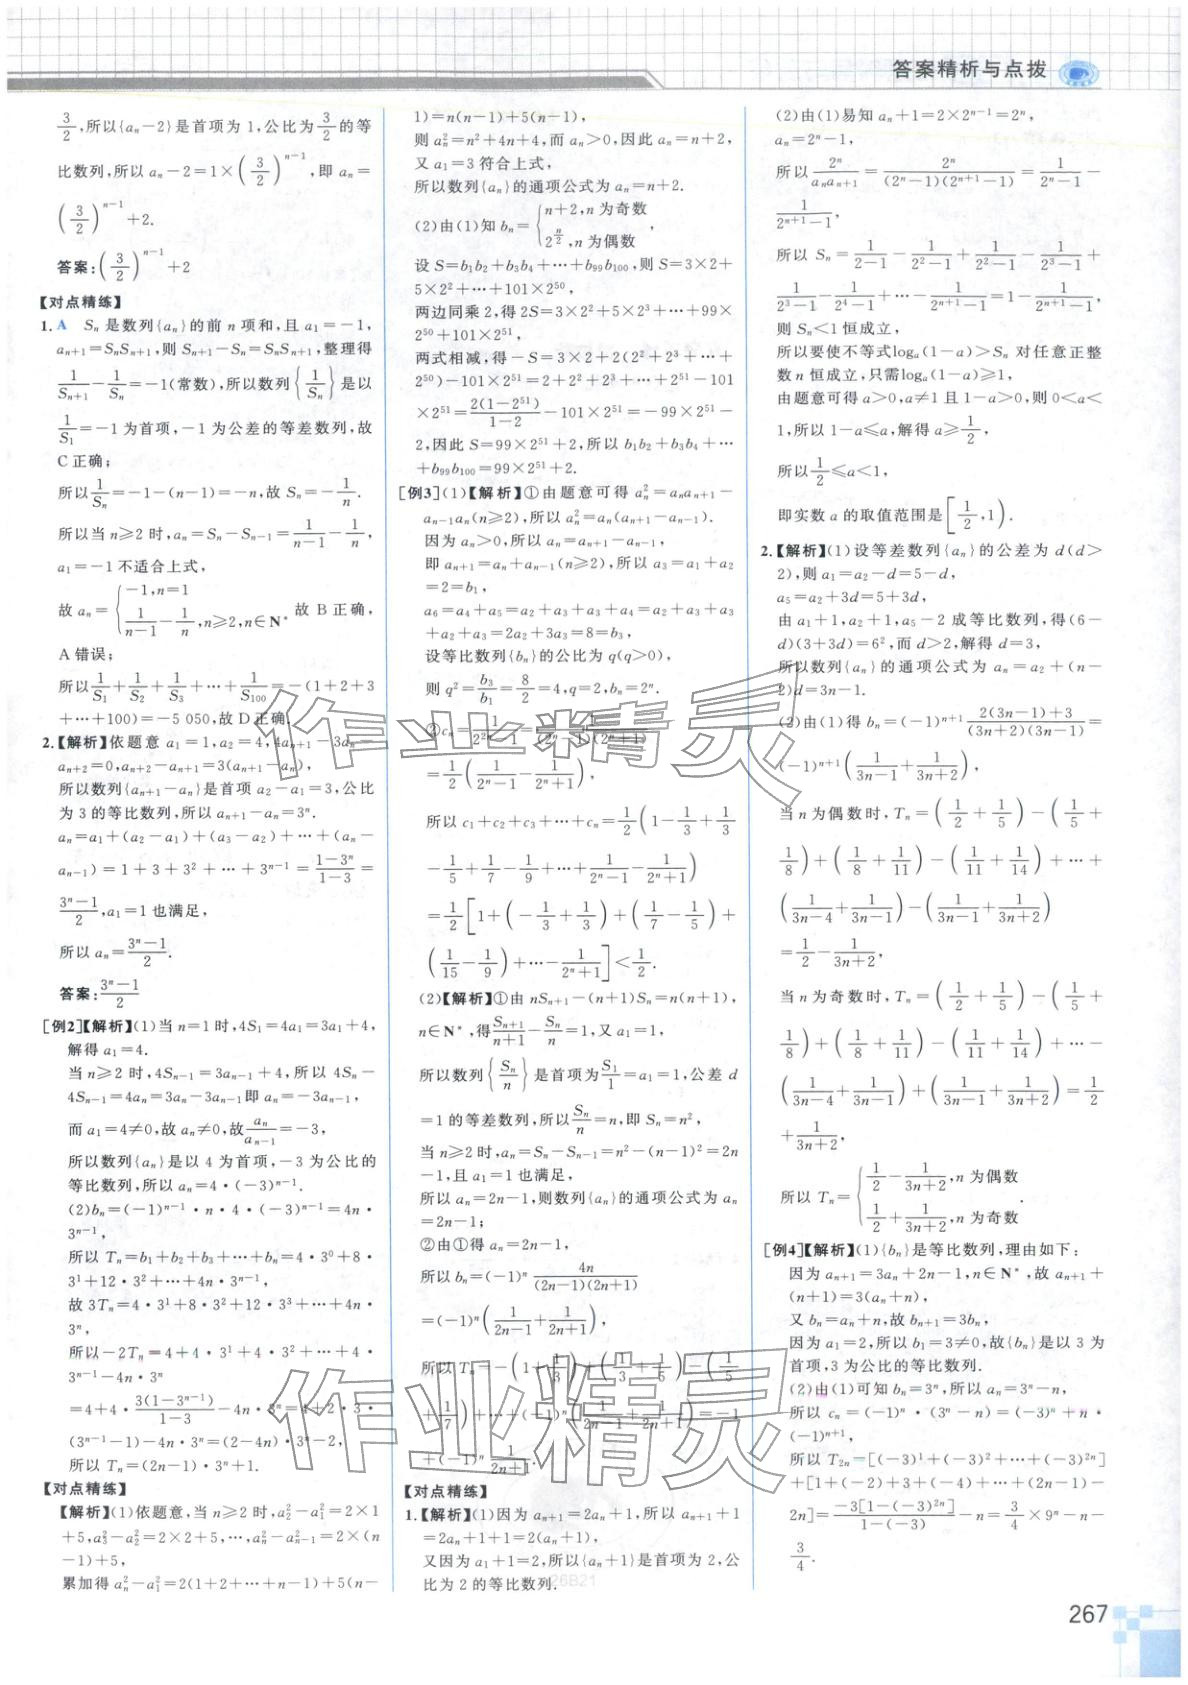 答案精析与点拨
3/2,所以{aₙ-2}是首项为1,公比为3/2的等
比数列,所以aₙ-2=1×(3/2)ⁿ⁻¹,即aₙ=
(3/2)ⁿ⁻¹+2.
答案:(3/2)ⁿ⁻¹+2
【对点精练】
1.A Sₙ是数列{aₙ}的前n项和,且a₁=-1,
aₙ₊₁=SₙSₙ₊₁,则Sₙ₊₁-Sₙ=SₙSₙ₊₁,整理得
1/Sₙ₊₁-1/Sₙ=-1(常数),所以数列{1/Sₙ}是以
1/S₁=-1为首项,-1为公差的等差数列,故
C正确;
所以1/Sₙ=-1-(n-1)=-n,故Sₙ=-1/n.
所以当n≥2时,aₙ=Sₙ-Sₙ₋₁=1/(n-1)-1/n,
a₁=-1不适合上式,
故aₙ={-1,n=1
1/(n-1)-1/n,n≥2,n∈N* 故B正确,
A错误;
所以1/S₁+1/S₂+1/S₃+⋯+1/S₁₀₀=-(1+2+3
+⋯+100)=-5 050,故D正确.
2.【解析】依题意a₁=1,a₂=4,4aₙ₊₁-3aₙ-
aₙ₊₂=0,aₙ₊₂-aₙ₊₁=3(aₙ₊₁-aₙ),
所以数列{aₙ₊₁-aₙ}是首项a₂-a₁=3,公比
为3的等比数列,所以aₙ₊₁-aₙ=3ⁿ.
aₙ=a₁+(a₂-a₁)+(a₃-a₂)+⋯+(aₙ-
aₙ₋₁)=1+3+3²+⋯+3ⁿ⁻¹=(1-3ⁿ)/(1-3)=
(3ⁿ-1)/2,a₁=1也满足,
所以aₙ=(3ⁿ-1)/2.
答案:(3ⁿ-1)/2
[例2]【解析】(1)当n=1时,4S₁=4a₁=3a₁+4,
解得a₁=4.
当n≥2时,4Sₙ₋₁=3aₙ₋₁+4,所以4Sₙ-
4Sₙ₋₁=4aₙ=3aₙ-3aₙ₋₁即aₙ=-3aₙ₋₁,
而a₁=4≠0,故aₙ≠0,故aₙ/aₙ₋₁=-3,
所以数列{aₙ}是以4为首项,-3为公比的
等比数列,所以aₙ=4·(-3)ⁿ⁻¹.
(2)bₙ=(-1)ⁿ⁻¹·n·4·(-3)ⁿ⁻¹=4n·
3ⁿ⁻¹,
所以Tₙ=b₁+b₂+b₃+⋯+bₙ=4·3⁰+8·
3¹+12·3²+⋯+4n·3ⁿ⁻¹,
故3Tₙ=4·3¹+8·3²+12·3³+⋯+4n·
3ⁿ,
所以-2Tₙ=4+4·3¹+4·3²+⋯+4·
3ⁿ⁻¹-4n·3ⁿ
=4+4·3(1-3ⁿ⁻¹)/(1-3)-4n·3ⁿ=4+2·3·
(3ⁿ⁻¹-1)-4n·3ⁿ=(2-4n)·3ⁿ-2,
所以Tₙ=(2n-1)·3ⁿ+1.
【对点精练】
【解析】(1)依题意,当n≥2时,a₂²-a₁²=2×1
+5,a₃²-a₂²=2×2+5,⋯,aₙ²-aₙ₋₁²=2×(n
-1)+5,
累加得aₙ²-a₁²=2(1+2+⋯+n-1)+5(n-
1)=n(n-1)+5(n-1),
则aₙ²=n²+4n+4,而aₙ>0,因此aₙ=n+2,
又a₁=3符合上式,
所以数列{aₙ}的通项公式为aₙ=n+2.
(2)由(1)知bₙ={n+2,n为奇数
2^(n/2),n为偶数,
设S=b₁b₂+b₃b₄+⋯+b₉₉b₁₀₀,则S=3×2+
5×2²+⋯+101×2⁵⁰,
两边同乘2,得2S=3×2²+5×2³+⋯+99×
2⁵⁰+101×2⁵¹,
两式相减,得-S=3×2+2(2²+2³+⋯+
2⁵⁰)-101×2⁵¹=2+2²+2³+⋯+2⁵¹-101
×2⁵¹=2(1-2⁵¹)/(1-2)-101×2⁵¹=-99×2⁵¹-
2,因此S=99×2⁵¹+2,所以b₁b₂+b₃b₄+⋯
+b₉₉b₁₀₀=99×2⁵¹+2.
[例3](1)【解析】①由题意可得aₙ²=aₙaₙ₊₁-
aₙ₋₁aₙ(n≥2),所以aₙ²=aₙ(aₙ₊₁-aₙ₋₁).
因为aₙ>0,所以aₙ=aₙ₊₁-aₙ₋₁,
即aₙ₊₁=aₙ+aₙ₋₁(n≥2),所以a₃=a₁+a₂
=2=b₁,
a₆=a₄+a₅=a₂+a₃+a₃+a₄=a₂+a₃+a₃
+a₂+a₃=2a₂+3a₃=8=b₃,
设等比数列{bₙ}的公比为q(q>0),
则q²=b₃/b₁=8/2=4,q=2,bₙ=2ⁿ.
②cₙ=1/(2²ⁿ-1)=1/((2ⁿ-1)(2ⁿ+1))
=1/2(1/(2ⁿ-1)-1/(2ⁿ+1)),
所以c₁+c₂+c₃+⋯+cₙ=1/2(1-1/3+1/3
-1/5+1/7-1/9+⋯+1/(2ⁿ-1)-1/(2ⁿ+1))
=1/2[1+(-1/3+1/3)+(1/7-1/5)+
(1/15-1/9)+⋯-1/(2ⁿ+1)]<1/2.
(2)【解析】①由nSₙ₊₁-(n+1)Sₙ=n(n+1),
n∈N*,得Sₙ₊₁/(n+1)-Sₙ/n=1,又a₁=1,
所以数列{Sₙ/n}是首项为S₁/1=a₁=1,公差d
=1的等差数列,所以Sₙ/n=n,即Sₙ=n²,
当n≥2时,aₙ=Sₙ-Sₙ₋₁=n²-(n-1)²=2n
-1,且a₁=1也满足,
所以aₙ=2n-1,则数列{aₙ}的通项公式为aₙ
=2n-1;
②由①得aₙ=2n-1,
所以bₙ=(-1)ⁿ 4n/((2n-1)(2n+1))
=(-1)ⁿ(1/(2n-1)+1/(2n+1)),
所以Tₙ=-(1+1/3)+(1/3+1/5)-(1/5
+1/7)+⋯+(-1)ⁿ(1/(2n-1)+1/(2n+1))=-1
+(-1)ⁿ 1/(2n+1).
【对点精练】
1.【解析】(1)因为aₙ₊₁=2aₙ+1,所以aₙ₊₁+1
=2aₙ+1+1=2(aₙ+1),
又因为a₁+1=2,所以{aₙ+1}是首项为2,公
比为2的等比数列.
(2)由(1)易知aₙ+1=2×2ⁿ⁻¹=2ⁿ,
aₙ=2ⁿ-1,
所以2ⁿ/(aₙaₙ₊₁)=2ⁿ/((2ⁿ-1)(2ⁿ⁺¹-1))=1/(2ⁿ-1)-
1/(2ⁿ⁺¹-1),
所以Sₙ=1/(2-1)-1/(2²-1)+1/(2²-1)-1/(2³-1)+
1/(2³-1)-1/(2⁴-1)+⋯-1/(2ⁿ⁺¹-1)=1-1/(2ⁿ⁺¹-1),
则Sₙ<1恒成立,
所以要使不等式logₐ(1-a)>Sₙ对任意正整
数n恒成立,只需logₐ(1-a)≥1,
由题意可得a>0,a≠1且1-a>0,则0<a<
1,所以1-a≤a,解得a≥1/2,
所以1/2≤a<1,
即实数a的取值范围是[1/2,1).
2.【解析】(1)设等差数列{aₙ}的公差为d(d>
2),则a₁=a₂-d=5-d,
a₅=a₂+3d=5+3d,
由a₁+1,a₂+1,a₅-2成等比数列,得(6-
d)(3+3d)=6²,而d>2,解得d=3,
所以数列{aₙ}的通项公式为aₙ=a₂+(n-
2)d=3n-1.
(2)由(1)得bₙ=(-1)ⁿ⁺¹ (2(3n-1)+3)/((3n+2)(3n-1))=
(-1)ⁿ⁺¹(1/(3n-1)+1/(3n+2)),
当n为偶数时,Tₙ=(1/2+1/5)-(1/5+
1/8)+(1/8+1/11)-(1/11+1/14)+⋯+
(1/(3n-4)+1/(3n-1))-(1/(3n-1)+1/(3n+2))
=1/2-1/(3n+2),
当n为奇数时,Tₙ=(1/2+1/5)-(1/5+
1/8)+(1/8+1/11)-(1/11+1/14)+⋯-
(1/(3n-4)+1/(3n-1))+(1/(3n-1)+1/(3n+2))=1/2
+1/(3n+2),
所以Tₙ={1/2-1/(3n+2),n为偶数
1/2+1/(3n+2),n为奇数.
[例4]【解析】(1){bₙ}是等比数列,理由如下:
因为aₙ₊₁=3aₙ+2n-1,n∈N*,故aₙ₊₁+
(n+1)=3(aₙ+n),
又bₙ=aₙ+n,故bₙ₊₁=3bₙ,
因为a₁=2,所以b₁=3≠0,故{bₙ}是以3为
首项,3为公比的等比数列.
(2)由(1)可知bₙ=3ⁿ,所以aₙ=3ⁿ-n,
所以cₙ=(-1)ⁿ·(3ⁿ-n)=(-3)ⁿ+n·
(-1)ⁿ⁺¹,
所以T₂ₙ=[(-3)¹+(-3)²+⋯+(-3)²ⁿ]
+[1+(-2)+3+(-4)+⋯+(2n-1)-
2n]=-3[1-(-3)²ⁿ]/(1-(-3))-n=3/4×9ⁿ-n-
3/4.
作业精灵
作业精灵
26B21
267